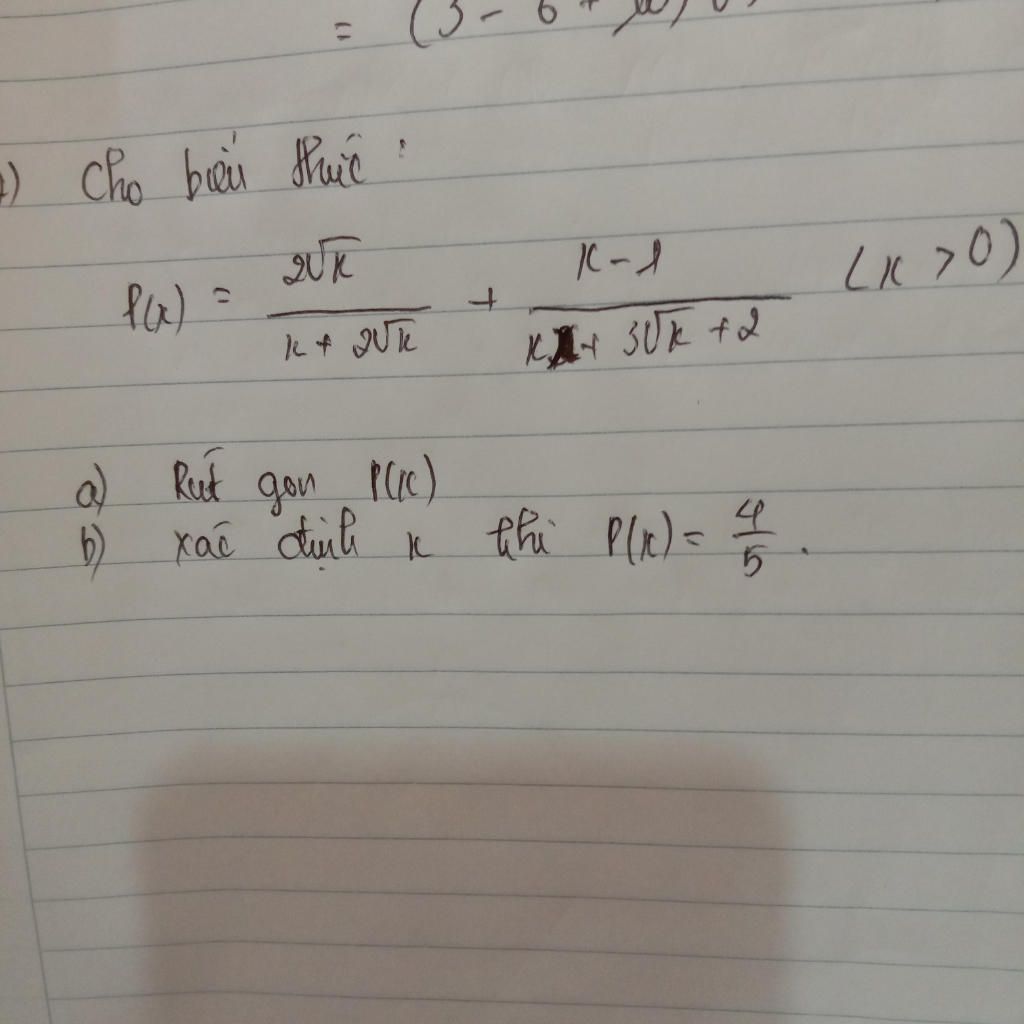 = (3 - 6 +
Cho biểu thức :
P(x) = 2√x / (x + 2√x) + (x - 1) / (x + 3√x + 2) (x > 0)
a) Rút gọn P(x)
b) xác định x thì P(x) = 4/5 .